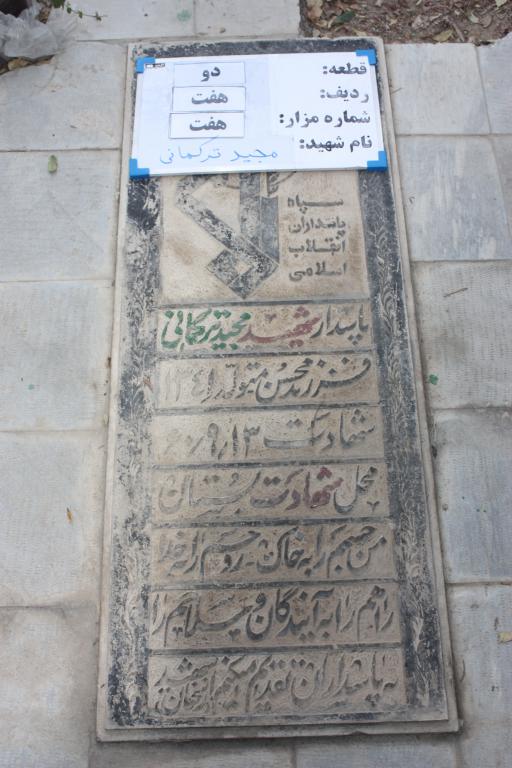 قطعه: دو
ردیف: هفت
شماره مزار: هفت
نام شهید: مجید ترکمانی
سپاه
پاسداران
انقلاب
اسلامی
پاسدار شهید مجید ترکمانی
فرزند محسن متولد ۱۳۴۱
شهادت ۶۰/۹/۱۳
محل شهادت بستان
من جسمم را به خاک - روحم را به خدا
راهم را به آیندگان و سلاحم را
به پاسداران تقدیم میکنم